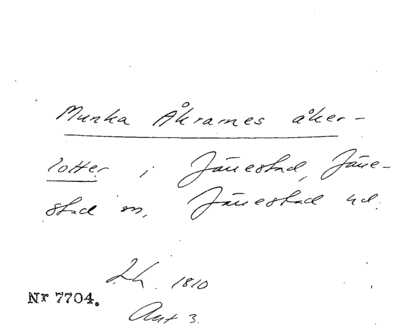 Munka Åkrarnes åker-
lotter i Jönestad, Jöne-
stad m, Jönestad hd.
Lh. 1810
Nr 7704.
Aut 3.